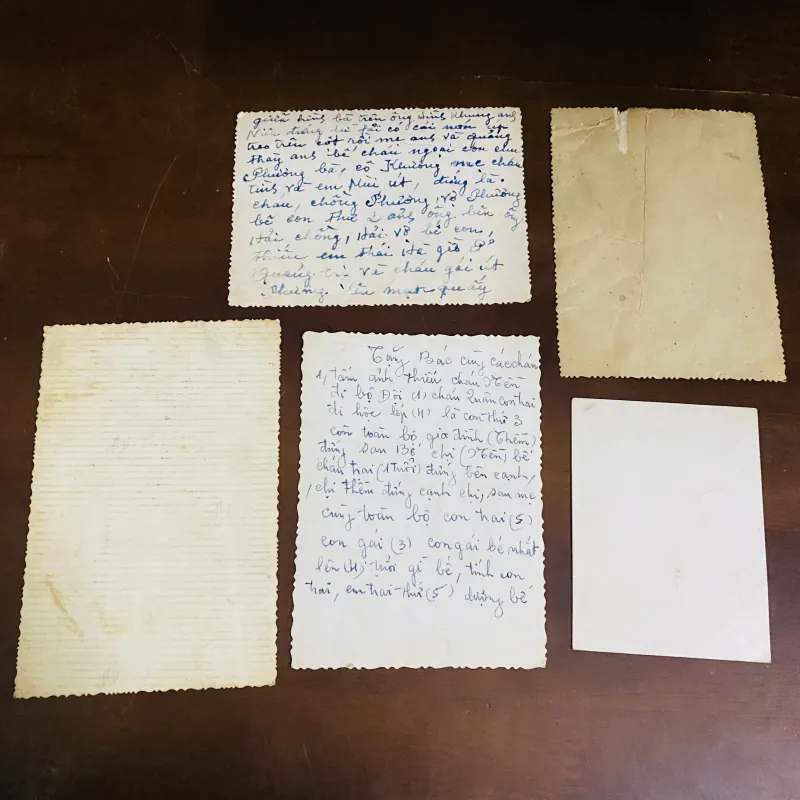 giữa hình bà trên ông Sinh Khung ans
Niên đứng từ fải có cái nón úp
treo trên cột rồi mẹ ans và Quảng
thầy ans bế cháu ngoại con em
Phường bà, cô Khường mẹ cháu
tins và em Mùi út, đứng là.
cháu, chồng Phường, vợ Phường
bế con thứ 2 ans ông bên ông
Hải chồng, Hải vợ bế con,
thiếu em thái Hà giờ ở
Quảng Trị về cháu gái út
Phường
Tặng Bác cùng các cháu
1, tấm ảnh thiếu cháu Nền
đi bộ Đội (1) cháu Quân con trai
đi học lớp (4) là con thứ 3
còn toàn bộ gia đình (Thềm)
đứng sau Bố, chị (Nền) bế
cháu trai (1 tuổi) đứng bên cạnh,
chị thềm đứng cạnh chị, sau mẹ
cùng toàn bộ con trai (5)
con gái (3) con gái bé nhất
lên (4) tuổi gì bế, tính con
trai, em trai thứ (5) dượng bế